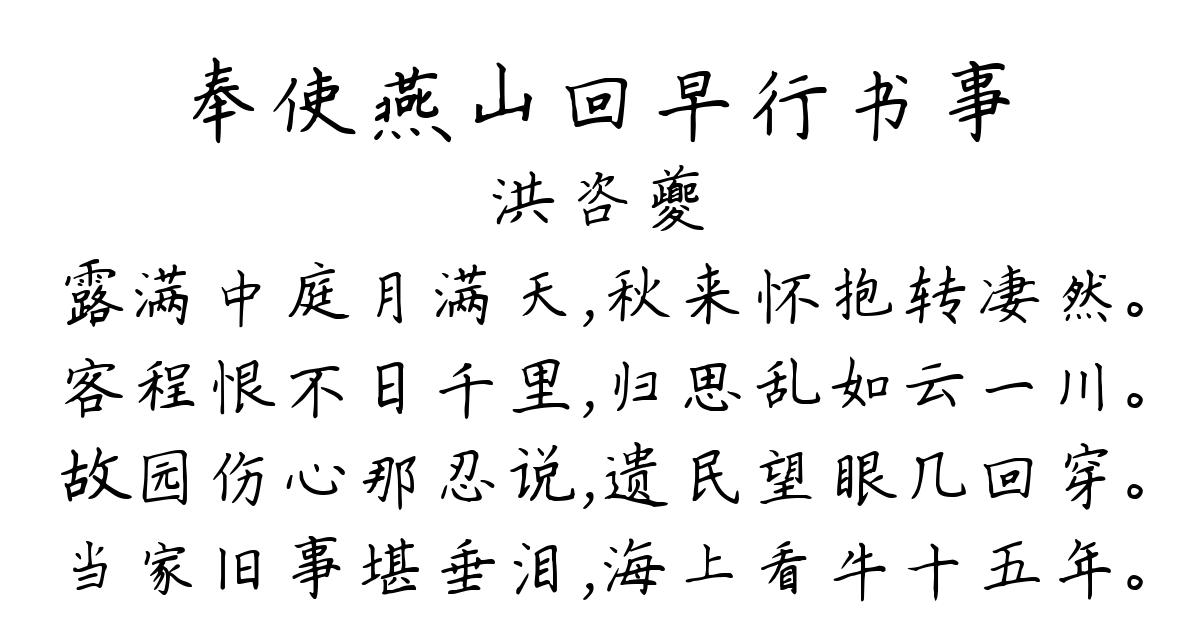 奉使燕山回早行书事
洪咨夔
露满中庭月满天,秋来怀抱转凄然。
客程恨不日千里,归思乱如云一川。
故园伤心那忍说,遗民望眼几回穿。
当家旧事堪垂泪,海上看牛十五年。